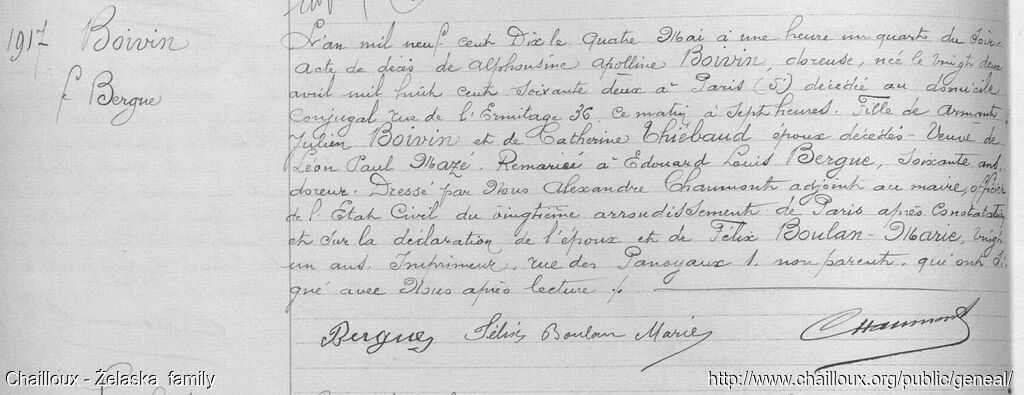 1917 Boivin
f Bergue
L'an mil neuf cent Dix le quatre Mai à une heure un quart du soir
Acte de décès de Alphonsine Apolline Boivin, doreuse, née le vingt deux
avril mil huit cent soixante deux à Paris (5) décédée au domicile
conjugal rue de l'Ermitage 36, ce matin à sept heures. Fille de Armand
Julien Boivin et de Catherine Thiébaud époux décédés - Veuve de
Léon Paul Mazé. Remariée à Edouard Louis Bergue, soixante ans
doreur. Dressé par Nous Alexandre Chaumont adjoint au maire, officier
de l'Etat Civil du vingtième arrondissement de Paris après constatation
et sur la déclaration de l'époux et de Félix Boulan-Marie, vingt
un ans. Imprimeur, rue des Panoyaux 1, non parent, qui ont si-
gné avec Nous après lecture ./.
Bergue Félix Boulan Marie Chaumont
Chailloux - Żelaska family
http://www.chailloux.org/public/geneal/